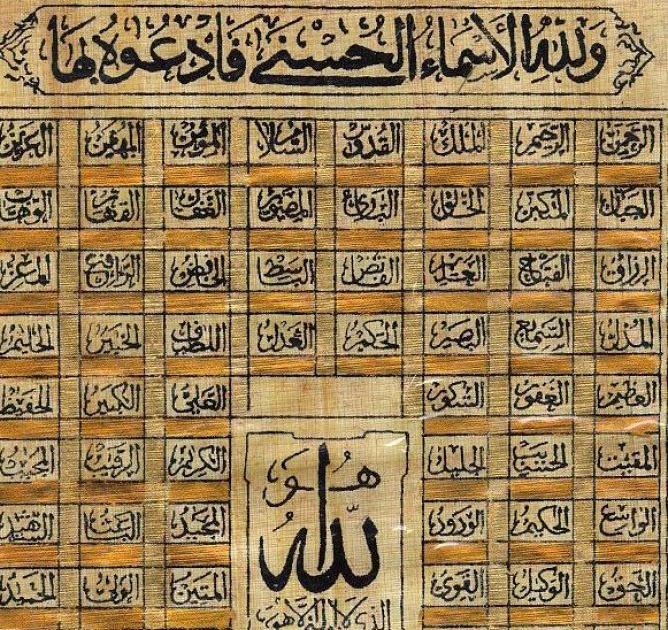 ولله الأسماء الحسنى فادعوه بها
الرحمن الرحيم الملك القدوس السلام المؤمن المهيمن العزيز
الجبار المتكبر الخالق البارئ المصور الغفار القهار الوهاب
الرزاق الفتاح العليم القابض الباسط الخافض الرافع المعز
المذل السميع البصير الحكم العدل اللطيف الخبير الحليم
العظيم الغفور الشكور العلي الكبير الحفيظ
المقيت الحسيب الجليل الكريم الرقيب المجيب
الواسع الحكيم الودود المجيد الباعث الشهيد
الحق الوكيل القوي المتين الولي الحميد
هو
الله
الذي لا إله إلا هو